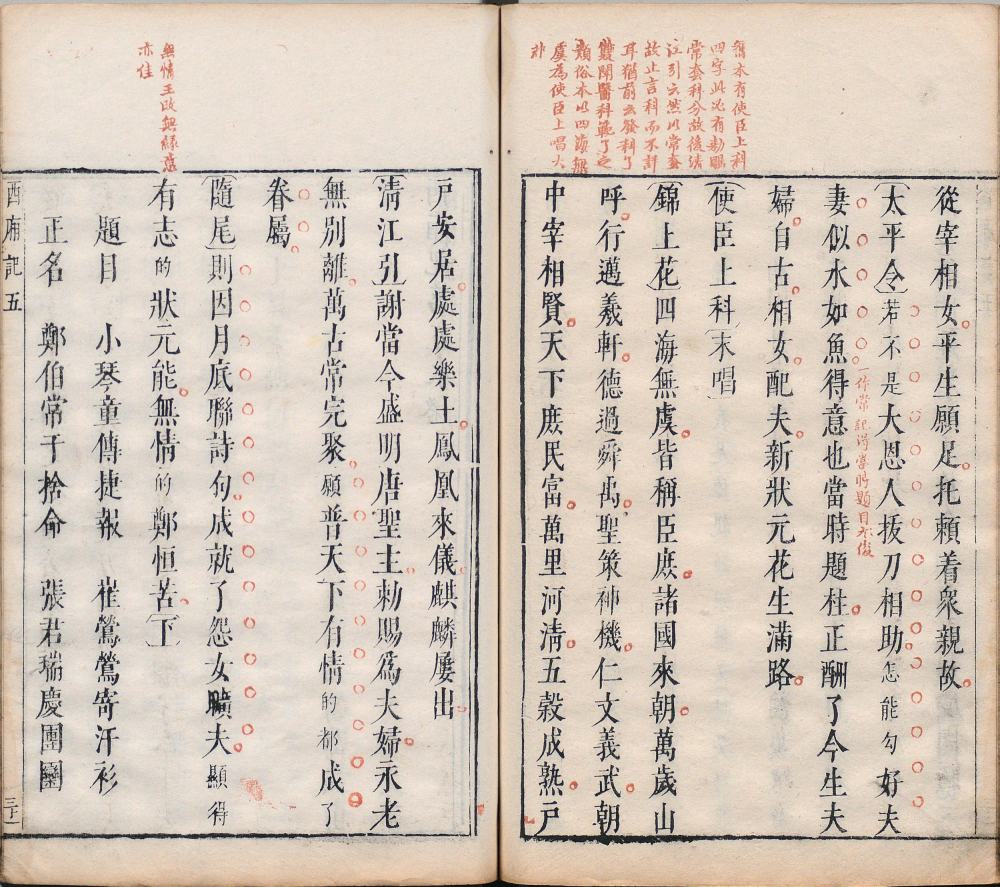 舊本有使臣上科
四字此必有勑賜
常套科分故後淸
江引云然以常套
故止言科而不詳
耳猶前云發科了
雙鬬醫科範了之
類俗本以四海無
虞為使臣上唱大
非
從宰相女平生願足托賴着衆親故
〔太平令〕若不是大恩人拔刀相助怎能勾好夫
妻似水如魚得意也當時題柱正酬了今生夫
一作常記得當時題目亦俊
婦自古相女配夫新狀元花生滿路
〔使臣上科〕〔末唱〕
〔錦上花〕四海無虞皆稱臣庶諸國來朝萬歲山
呼行邁羲軒德過舜禹聖策神機仁文義武朝
中宰相賢天下庶民富萬里河淸五穀成熟戶
無情王改無緣意
亦佳
戶安居處處樂土鳳凰來儀麒麟屢出
〔淸江引〕謝當今盛明唐聖主勑賜爲夫婦永老
無別離萬古常完聚願普天下有情的都成了
眷屬
〔隨尾〕則因月底聯詩句成就了怨女曠夫顯得
有志的狀元能無情的鄭恒苦〔下〕
題目　小琴童傳捷報　崔鶯鶯寄汗衫
正名　鄭伯常干捨命　張君瑞慶團圞
西廂記五